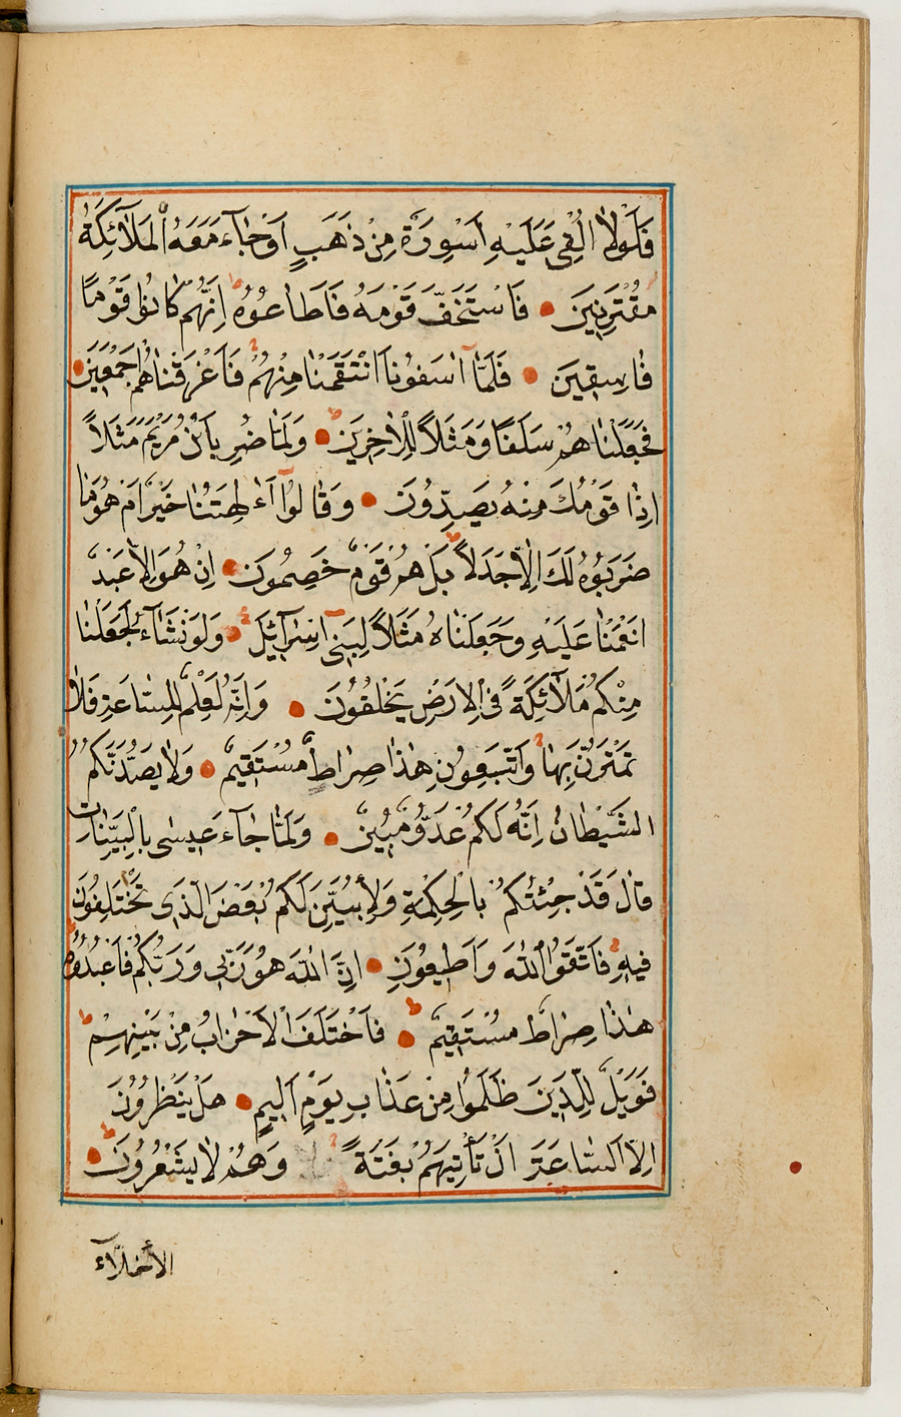 فَلَوْلَٓا اُلْقِيَ عَلَيْهِ اَسْوِرَةٌ مِنْ ذَهَبٍ اَوْ جَٓاءَ مَعَهُ الْمَلٰٓئِكَةُ
مُقْتَرِنِينَ فَاسْتَخَفَّ قَوْمَهُ فَاَطَاعُوهُ ط اِنَّهُمْ كَانُوا قَوْمًا
فَاسِقِينَ فَلَمَّٓا اٰسَفُونَا انْتَقَمْنَا مِنْهُمْ فَاَغْرَقْنَاهُمْ اَجْمَعِينَ
فَجَعَلْنَاهُمْ سَلَفًا وَمَثَلًا لِلْاٰخِرِينَ ط وَلَمَّا ضُرِبَ ابْنُ مَرْيَمَ مَثَلًا
اِذَا قَوْمُكَ مِنْهُ يَصِدُّونَ وَقَالُٓوا ءَاٰلِهَتُنَا خَيْرٌ اَمْ هُوَ مَا
ضَرَبُوهُ لَكَ اِلَّا جَدَلًا ط بَلْ هُمْ قَوْمٌ خَصِمُونَ اِنْ هُوَ اِلَّا عَبْدٌ
اَنْعَمْنَا عَلَيْهِ وَجَعَلْنَاهُ مَثَلًا لِبَنِٓي اِسْرَٓائِيلَ وَلَوْ نَشَٓاءُ لَجَعَلْنَا
مِنْكُمْ مَلٰٓئِكَةً فِي الْاَرْضِ يَخْلُفُونَ وَاِنَّهُ لَعِلْمٌ لِلسَّاعَةِ فَلَا
تَمْتَرُنَّ بِهَا وَاتَّبِعُونِ هٰذَا صِرَاطٌ مُسْتَقِيمٌ وَلَا يَصُدَّنَّكُمُ
الشَّيْطَانُ اِنَّهُ لَكُمْ عَدُوٌّ مُبِينٌ وَلَمَّا جَٓاءَ عِيسٰى بِالْبَيِّنَاتِ
قَالَ قَدْ جِئْتُكُمْ بِالْحِكْمَةِ وَلِاُبَيِّنَ لَكُمْ بَعْضَ الَّذِي تَخْتَلِفُونَ
فِيهِ فَاتَّقُوا اللّٰهَ وَاَطِيعُونِ اِنَّ اللّٰهَ هُوَ رَبِّي وَرَبُّكُمْ فَاعْبُدُوهُ
هٰذَا صِرَاطٌ مُسْتَقِيمٌ ط فَاخْتَلَفَ الْاَحْزَابُ مِنْ بَيْنِهِمْ ط
فَوَيْلٌ لِلَّذِينَ ظَلَمُوا مِنْ عَذَابِ يَوْمٍ اَلِيمٍ هَلْ يَنْظُرُونَ
اِلَّا السَّاعَةَ اَنْ تَأْتِيَهُمْ بَغْتَةً وَهُمْ لَا يَشْعُرُونَ ط
الْاَخِلَّٓاءُ